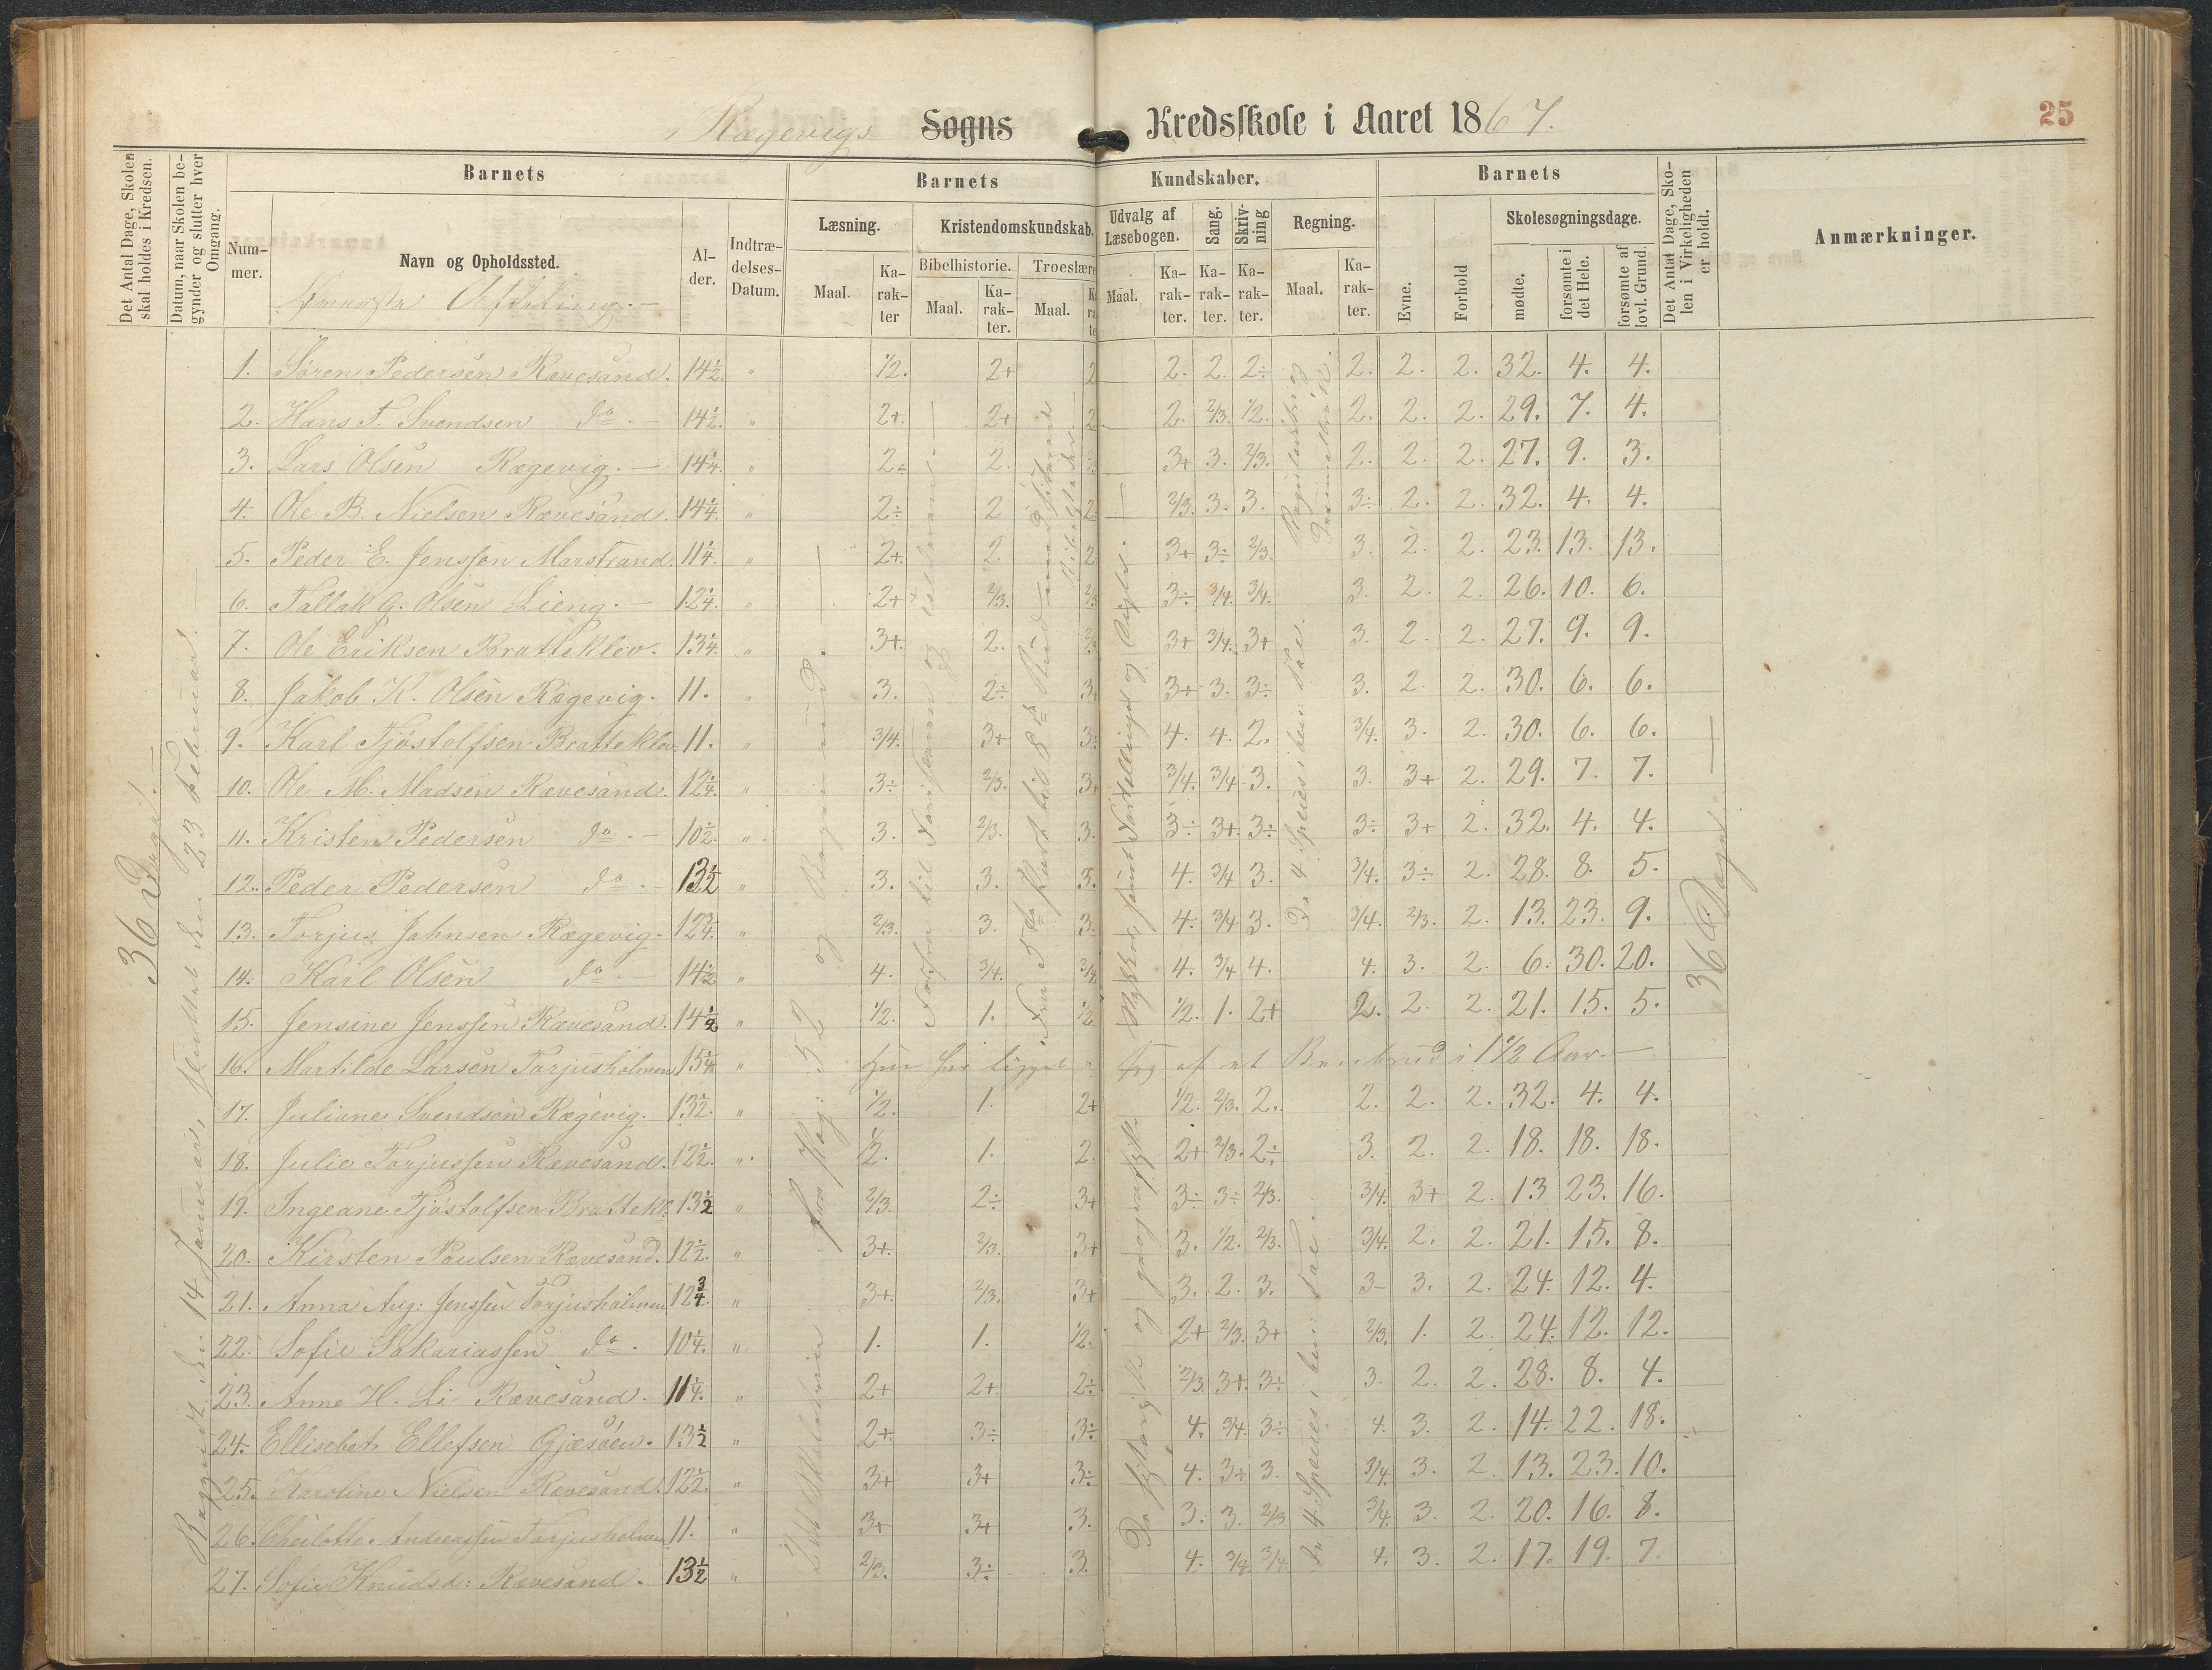 Rægevigs Sogns Kredsskole i Aaret 1867.
25
Det Antal Dage, Skolen skal holdes i Kredsen.
Datum, naar Skolen begynder og slutter hver Omgang.
Barnets
Barnets
Kundskaber.
Barnets
Det Antal Dage, Skolen i Virkeligheden er holdt.
Anmærkninger.
Nummer.
Navn og Opholdssted.
Alder.
Indtrædelses-Datum.
Læsning.
Kristendomskundskab.
Udvalg af Læsebogen.
Sang.
Skrivning
Regning.
Evne.
Forhold
Skolesøgningsdage.
Maal.
Karakter
Bibelhistorie.
Troeslære
Maal.
Karakter.
Maal.
Maal.
Karakter.
Karakter.
Karakter.
Maal.
Karakter.
mødte.
forsømte i det Hele.
forsømte af lovl. Grund.
36 Dage.
den 14 Januar, sluttet den 23 Februar.
36 Dage.
1. Søren Pedersen Rævesand. 14½. " ½. 2+ 2 2. 2. 2÷ 2. 2. 2. 32. 4. 4.
2. Hans T. Svendsen do. 14½. " 2+. 2+ 2 2. 2/3. ½. 2. 2. 2. 29. 7. 4.
3. Lars Olsen Rægevig. 14¼. " 2÷ 2. 3+ 3. 2/3. 2. 2. 2. 27. 9. 3.
4. Ole B. Nielsen Rævesand. 14¼. " 2÷ 2 2 2/3. 3. 3. 3÷ 2. 2. 32. 4. 4.
5. Peder E. Jenssen Marstrand. 11¼. " 2+. 2 2 3+ 3÷ 2/3. 3. 2. 2. 23. 13. 13.
6. Tallak G. Olsen Lieng. 12¼. " 2+ 2/3. 2/3 3÷ 3/4. 3/4. 3. 2. 2. 26. 10. 6.
7. Ole Eriksen Bratteklev. 13¼. " 3+. 2. 2/3 3+ 3/4. 3+ 3. 2. 2. 27. 9. 9.
8. Jakob K. Olsen Rægevig. 11. " 3. 2÷ 3+ 3+ 3. 3÷ 3. 2. 2. 30. 6. 6.
9. Karl Tjøstolfsen Bratteklev. 11. " 3/4. 3+ 3÷ 4. 4. 2. 3/4. 3. 2. 30. 6. 6.
10. Ole M. Madsen Rævesand. 12¼. " 3÷ 2/3. 3+ 3/4. 3/4 3. 3. 3+ 2. 29. 7. 7.
11. Kristen Pedersen do. 10½. " 3. 2/3. 3. 3÷ 3+. 3÷ 3÷ 3+ 2. 32. 4. 4.
12. Peder Pedersen do. 13½ " 3. 3. 3. 4. 3/4 3. 3/4. 3÷ 2. 28. 8. 5.
13. Torjus Jahnsen Rægevig. 12¾. " 2/3. 3. 3. 4. 3/4 3. 3/4. 2/3. 2. 13. 23. 9.
14. Karl Olsen do. 14½ " 4. 3/4. 3/4. 4. 3/4 4. 4. 3. 2. 6. 30. 20.
15. Jensine Jenssen Rævesand. 14½ " ½. 1. ½ ½. 1. 2+ 2. 2. 2. 21. 15. 5.
16. Martilde Larsen Torjusholmen 15¼ " Hun har ligget syg af et Benbrud i 1½ Aar.
17. Juliane Svendsen Rægevig. 13½. " ½. 1. 2+ ½. 2/3. 2. 2. 2. 2. 32. 4. 4.
18. Julie Torjussen Rævesand. 12½. " ½. 1. 2. 2+ 2/3. 2÷ 3. 2. 2. 18. 18. 18.
19. Ingeane Tjøstolfsen Brattekl. 13½ " 2/3. 2÷ 3+ 3÷ 3÷ 2/3. 3/4. 3+ 2. 13 23. 16.
20. Kirsten Paulsen Rævesand. 12½. " 3+. 2/3. 3+ 3. ½. 2/3. 3/4. 2. 2. 21. 15. 8.
21. Anna Aug: Jenssen Torjusholmen. 12¾. " 3+. 2/3. 3+ 3. 2. 3. 3- 3. 2. 24. 12. 4.
22. Sofie Sakariassen do. 10¼. " 1. 1. ½. 2+ 2/3. 3+ 2/3. 1. 2. 24. 12. 12.
23. Anne H. Li Rævesand. 11¼. " 2+ 2+. 2÷ 2/3. 3+. 3÷ 3. 2. 2. 28. 8. 4.
24. Ellisebet Ellefsen Gjæsøen. 13½ " 2+. 3÷ 3÷ 4. 3/4. 3÷ 4. 3. 2. 14. 22. 18.
25. Karoline Nielsen Rævesand. 12½. " 3+ 3+ 3÷ 4. 3+ 3. 3/4. 3. 2. 13. 23. 10.
26. Andreassen Torjusholmen 11. " 3+ 3+ 3. 3. 3. 2/3 3/4. 3. 2. 20. 16. 8.
27. Sofie Knudsd: Rævesand. 13½ " 2/3. 3÷ 3. 4. 3/4. 3/4. 4. 3. 2. 17. 19. 7.